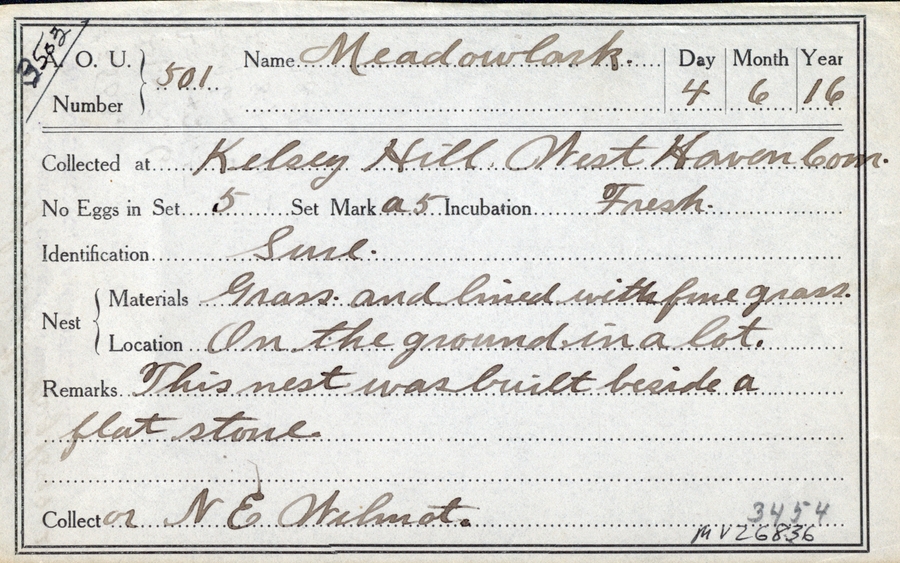 3502
A. O. U. Number 501 Name Meadowlark. Day 4 Month 6 Year 16
Collected at Kelsey Hill. West Haven Conn.
No Eggs in Set 5 Set Mark a5 Incubation Fresh.
Identification Sure.
Nest Materials Grass. and lined with fine grass.
Location On the ground in a lot.
Remarks This nest was built beside a
flat stone.
Collector N E Wilmot.
3454
MVZ6836